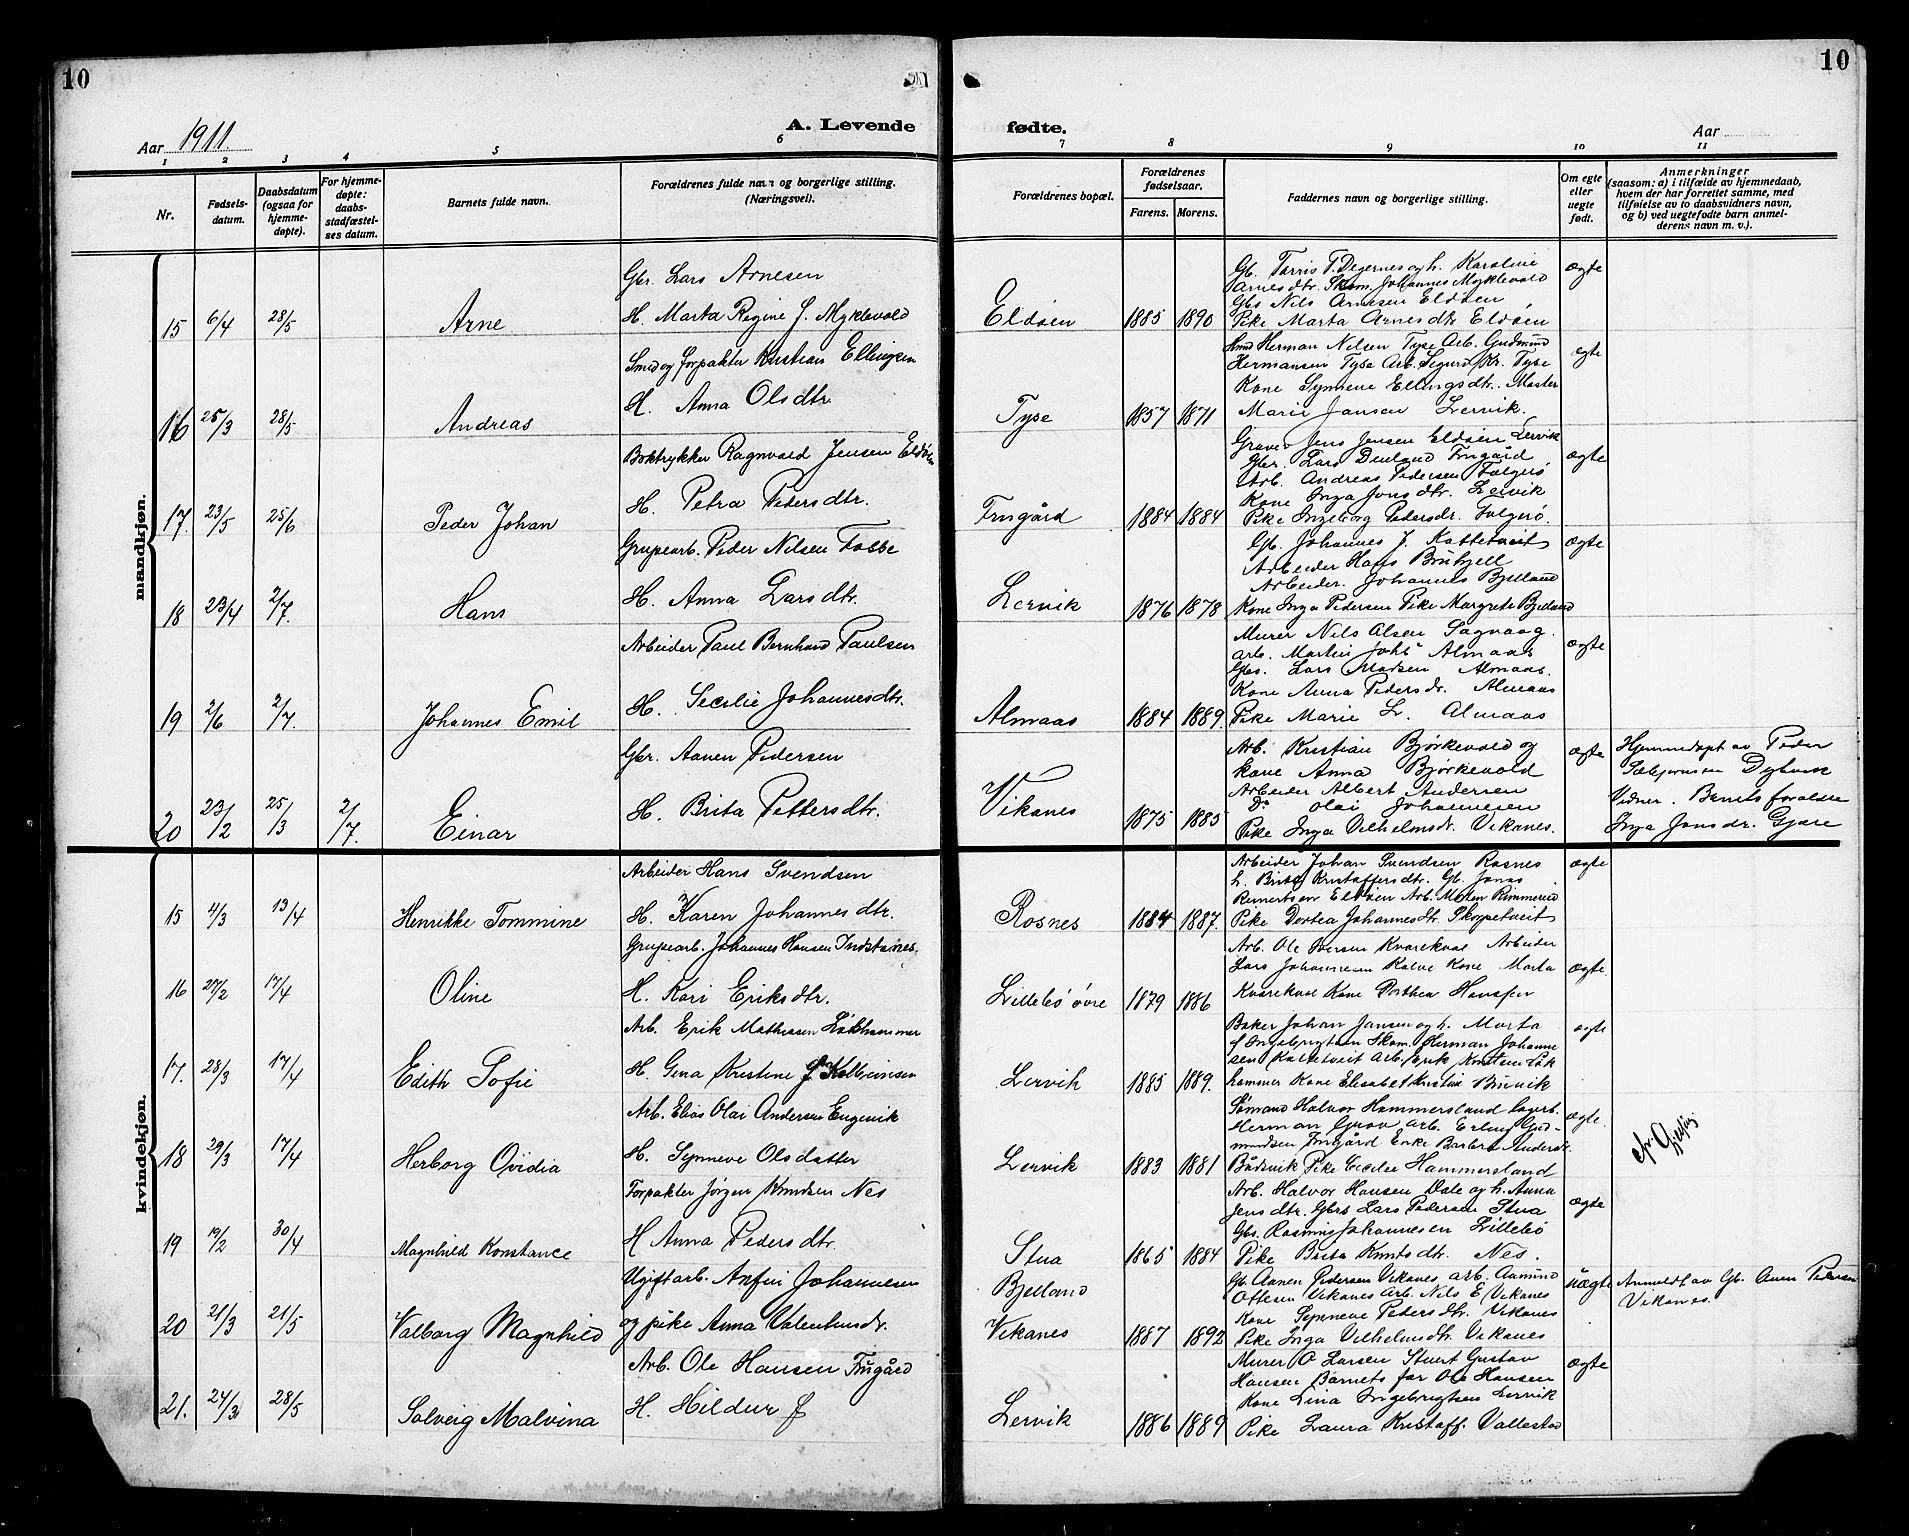 10
10
Aar 1911.
A. Levende
fødte.
Aar
1 2 3 4 5 6
7 8 9 10 11
Nr.
Fødsels-
datum.
Daabsdatum
(ogsaa for
hjemme-
døpte).
For hjemme-
døpte:
daabs-
stadfæstel-
ses datum.
Barnets fulde navn.
Forældrenes fulde navn og borgerlige stilling.
(Næringsvei).
Forældrenes bopæl.
Forældrenes
fødselsaar.
Farens. Morens.
Faddernes navn og borgerlige stilling.
Om egte
eller
uegte
født.
Anmerkninger
(saasom: a) i tilfælde av hjemmedaab,
hvem der har forrettet samme, med
tilføielse av to daabsvidners navn,
og b) ved uegtefødte barn anmel-
derens navn m. v.).
mandkjøn.
15 6/4 28/5 Arne
Gbr. Lars Arnesen
H. Marta Regine J. Myklevold
Eldøen 1885 1890
Gb. Tarris T. Degernes og h. Karoline
Arnesdtr. Skom. Johannes Myklevold
Gbs Nils Arnesen Eldøen
Pike Marta Arnesdtr Eldøen
ægte
16 25/3 28/5 Andreas
Smed og forpakter Kristian Ellingsen
H. Anna Olsdtr.
Tyse 1857 1871
Herman Nelsen Tyse Arb. Gudmund
Hermansen Tyse Arb. Sigurd Kr. Tyse
Kone Synneve Ellingsdtr. Moster
Marie Jansen Lervik.
egte
17. 23/5 25/6 Peder Johan
Boktrykker Ragnvald Jensen Eldøen
H. Petra Pedersdtr.
Frugård 1884 1884
Graver Jens Jensen Eldøen Lervik
Gbr. Lars Frugård
Arb. Andreas Pedersen Folgerø
Kone Inga Jonsdtr. Lervik
Pike Ingeborg Pedersdr. Folgerø.
ægte
18 23/4 2/7. Hans
Grupearb. Peder Nilsen Tobbe
H. Anna Larsdtr.
Lervik 1876 1878
Gb. Johannes J. Kattetveit
Arbeider Hans
Arbeider. Johannes Bjelland
Kone Inga Pedersen Pike Margrete Bjelland
ægte
19 2/6 2/7. Johannes Emil
Arbeider Paul Bernhard Paulsen
H. Secilie Johannesdtr.
Almaas 1884 1889.
Murer Nils Olsen Sagvaag.
Arb. Martin Johs Almaas
Gbs. Lars Madsen Almaas.
Kone Anna Pedersdr. Almaas
Pike Marie L. Almaas
ægte
20 23/2 25/3 2/7. Einar
Gbr. Aanen Pedersen
H. Brita Pettersdtr.
Vikanes 1875 1885
Arb. Kristian Bjørkevold og
kone Anna Bjørkevold
Arbeider Albert Andersen
Do Olai Johannesen
Pike Inga Vilhelmsdr. Vikanes.
ægte
Hjemmedøpt av Peder
Sæbjørnsen
Vidner. Barnets forældre
Inga Jonsdr. Gjøre
kvindekjøn.
15 4/3 13/4 Henrikke Tommine
Arbeider Hans Svendsen
H. Karen Johannesdtr.
Rosnes 1884 1887.
Arbeider Johan Svendsen Rosnes
h. Brita Kristoffersdtr. Gb. Jonas
Reinertsen Eldøen Arb. Morten Rimmereid
Pike Dortea Johannesdtr. Skogetveit
ægte
16 27/2 17/4 Oline
Grupearb. Johannes Hansen Indstønes.
H. Kari Eriksdtr.
Lillebø øvre 1879 1886
Arb. Ole Iversen Kvarekval Arbeider
Lars Johannesen Kalve Kone Marta
Kvarekval Kone Dorthea
ægte.
17. 28/3 17/4 Edith Sofie
Arb. Erik Mathiasen Løkhammer
H. Gena Kristine Kolbeinsen
Lervik 1885 1889.
Baker Johan Jansen og h. Marta
f Ingebrigtsen Skom. Herman Johanne
sen Kattetveit Arb. Erik Knutsen Løk
hammer Kone Elisabet Kristin
ægte
18 29/3 17/4 Herborg Ovidia
Arb. Elias Olai Andersen Engevik
H. Synneve Olsdatter
Lervik 1883 1881
Sømand Halvor Hammersland lagerb.
Herman Arb. Erling Gud-
mundsen Frugård Enke Barbra Andersdr.
Bådsvik Pike Cecilie Hammersland
ægte.
19 19/2 30/4 Magnhild Konstance
Forpakter Jørgen Knudsen Nes
H Anna Pedersdtr.
Stua 1865 1884
Arb. Halvor Hansen Dale og h. Anna
Jensdtr. Gbrs Lars Pedersen Stua
Gbs. Rasmus Johannesen Lillebø
Pike Brita Knutsdtr. Nes.
ægte
20 21/3 21/5 Valborg Magnhild
Ugift arb. Anfin Johannesen
og pike Anna Valentinsdr.
Bjelland
Vikanes 1887 1892
Gb. Aanen Pedersen Vikanes Arb. Aamund
Ottesen Vikanes Arb. Nils E Vikanes
Kone Synneve Pedersdtr. Vikanes
Pike Inga Vilhelmsdtr. Vikanes
uægte
Anmeldt av Gb. Anen Pedersen
Vikanes.
21. 24/3 28/5 Solveig Malvina
Arb. Ole Hansen Frugård
H. Hildur J
Lervik 1886 1889
Murer O Larsen Stuert Gustav
Hansen Barnets far Ole Hansen
Kone Lina Ingebrigtsen Lervik
Pike Laura Kristoff. Vallestad
ægte